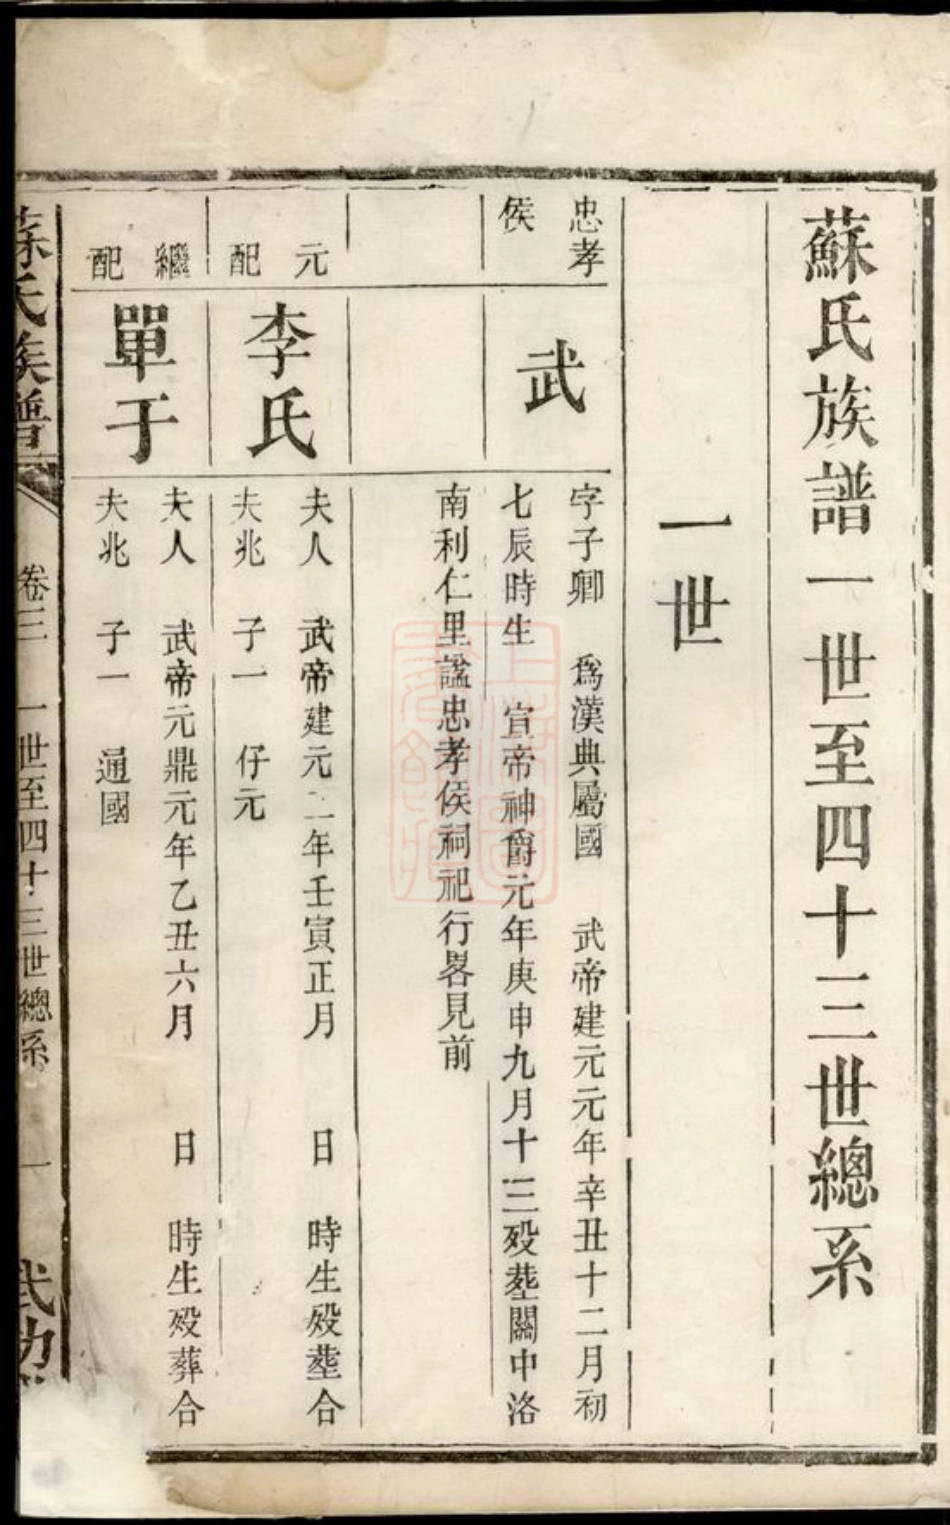 蘇氏族譜一世至四十三世總系
一世
忠孝
侯
武
字子卿 為漢典屬國 武帝建元元年辛丑十二月初
七辰時生 宣帝神爵元年庚申九月十三歿塟關中洛
南利仁里諡忠孝侯祠祀行畧見前
元
配
李氏
夫人 武帝建元二年壬寅正月 日 時生歿塟合
夫兆 子一 仔元
繼
配
單于
夫人 武帝元鼎元年乙丑六月 日 時生歿葬合
夫兆 子一 通國
蘇氏族譜 卷三 一世至四十三世總系 一 武功